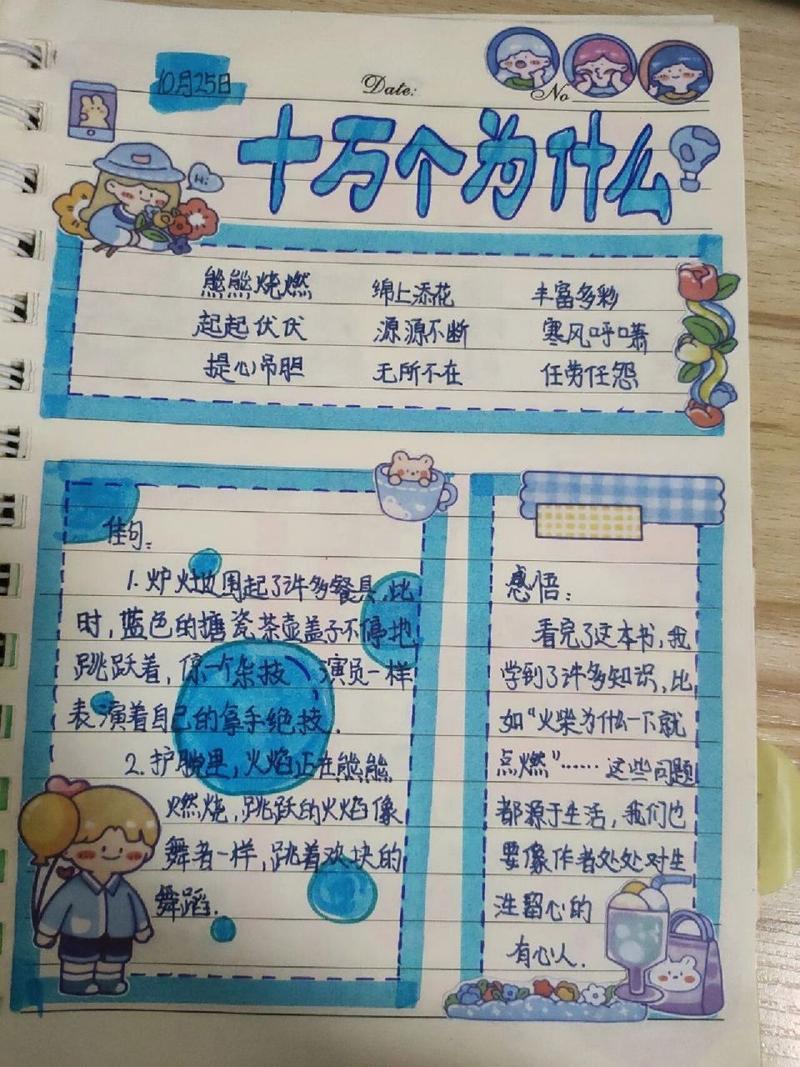 10月25日
Date:
No
Hi
十万个为什么
熊熊烧燃 绵上添花 丰富多彩
起起伏伏 源源不断 寒风呼啸
提心吊胆 无所不在 任劳任怨
佳句:
1. 炉灶边围起了许多餐具,此
时,蓝色的搪瓷茶壶盖子不停地
跳跃着,像一个杂技 演员一样
表演着自己的拿手绝技.
2. 炉膛里,火焰正在熊熊
燃烧,跳跃的火焰像
舞者一样,跳着欢快的
舞蹈.
感悟:
看完了这本书,我
学到了许多知识,比
如“火柴为什么一下就
点燃”……这些问题
都源于生活,我们也
要像作者处处对生
活留心的
有心人.